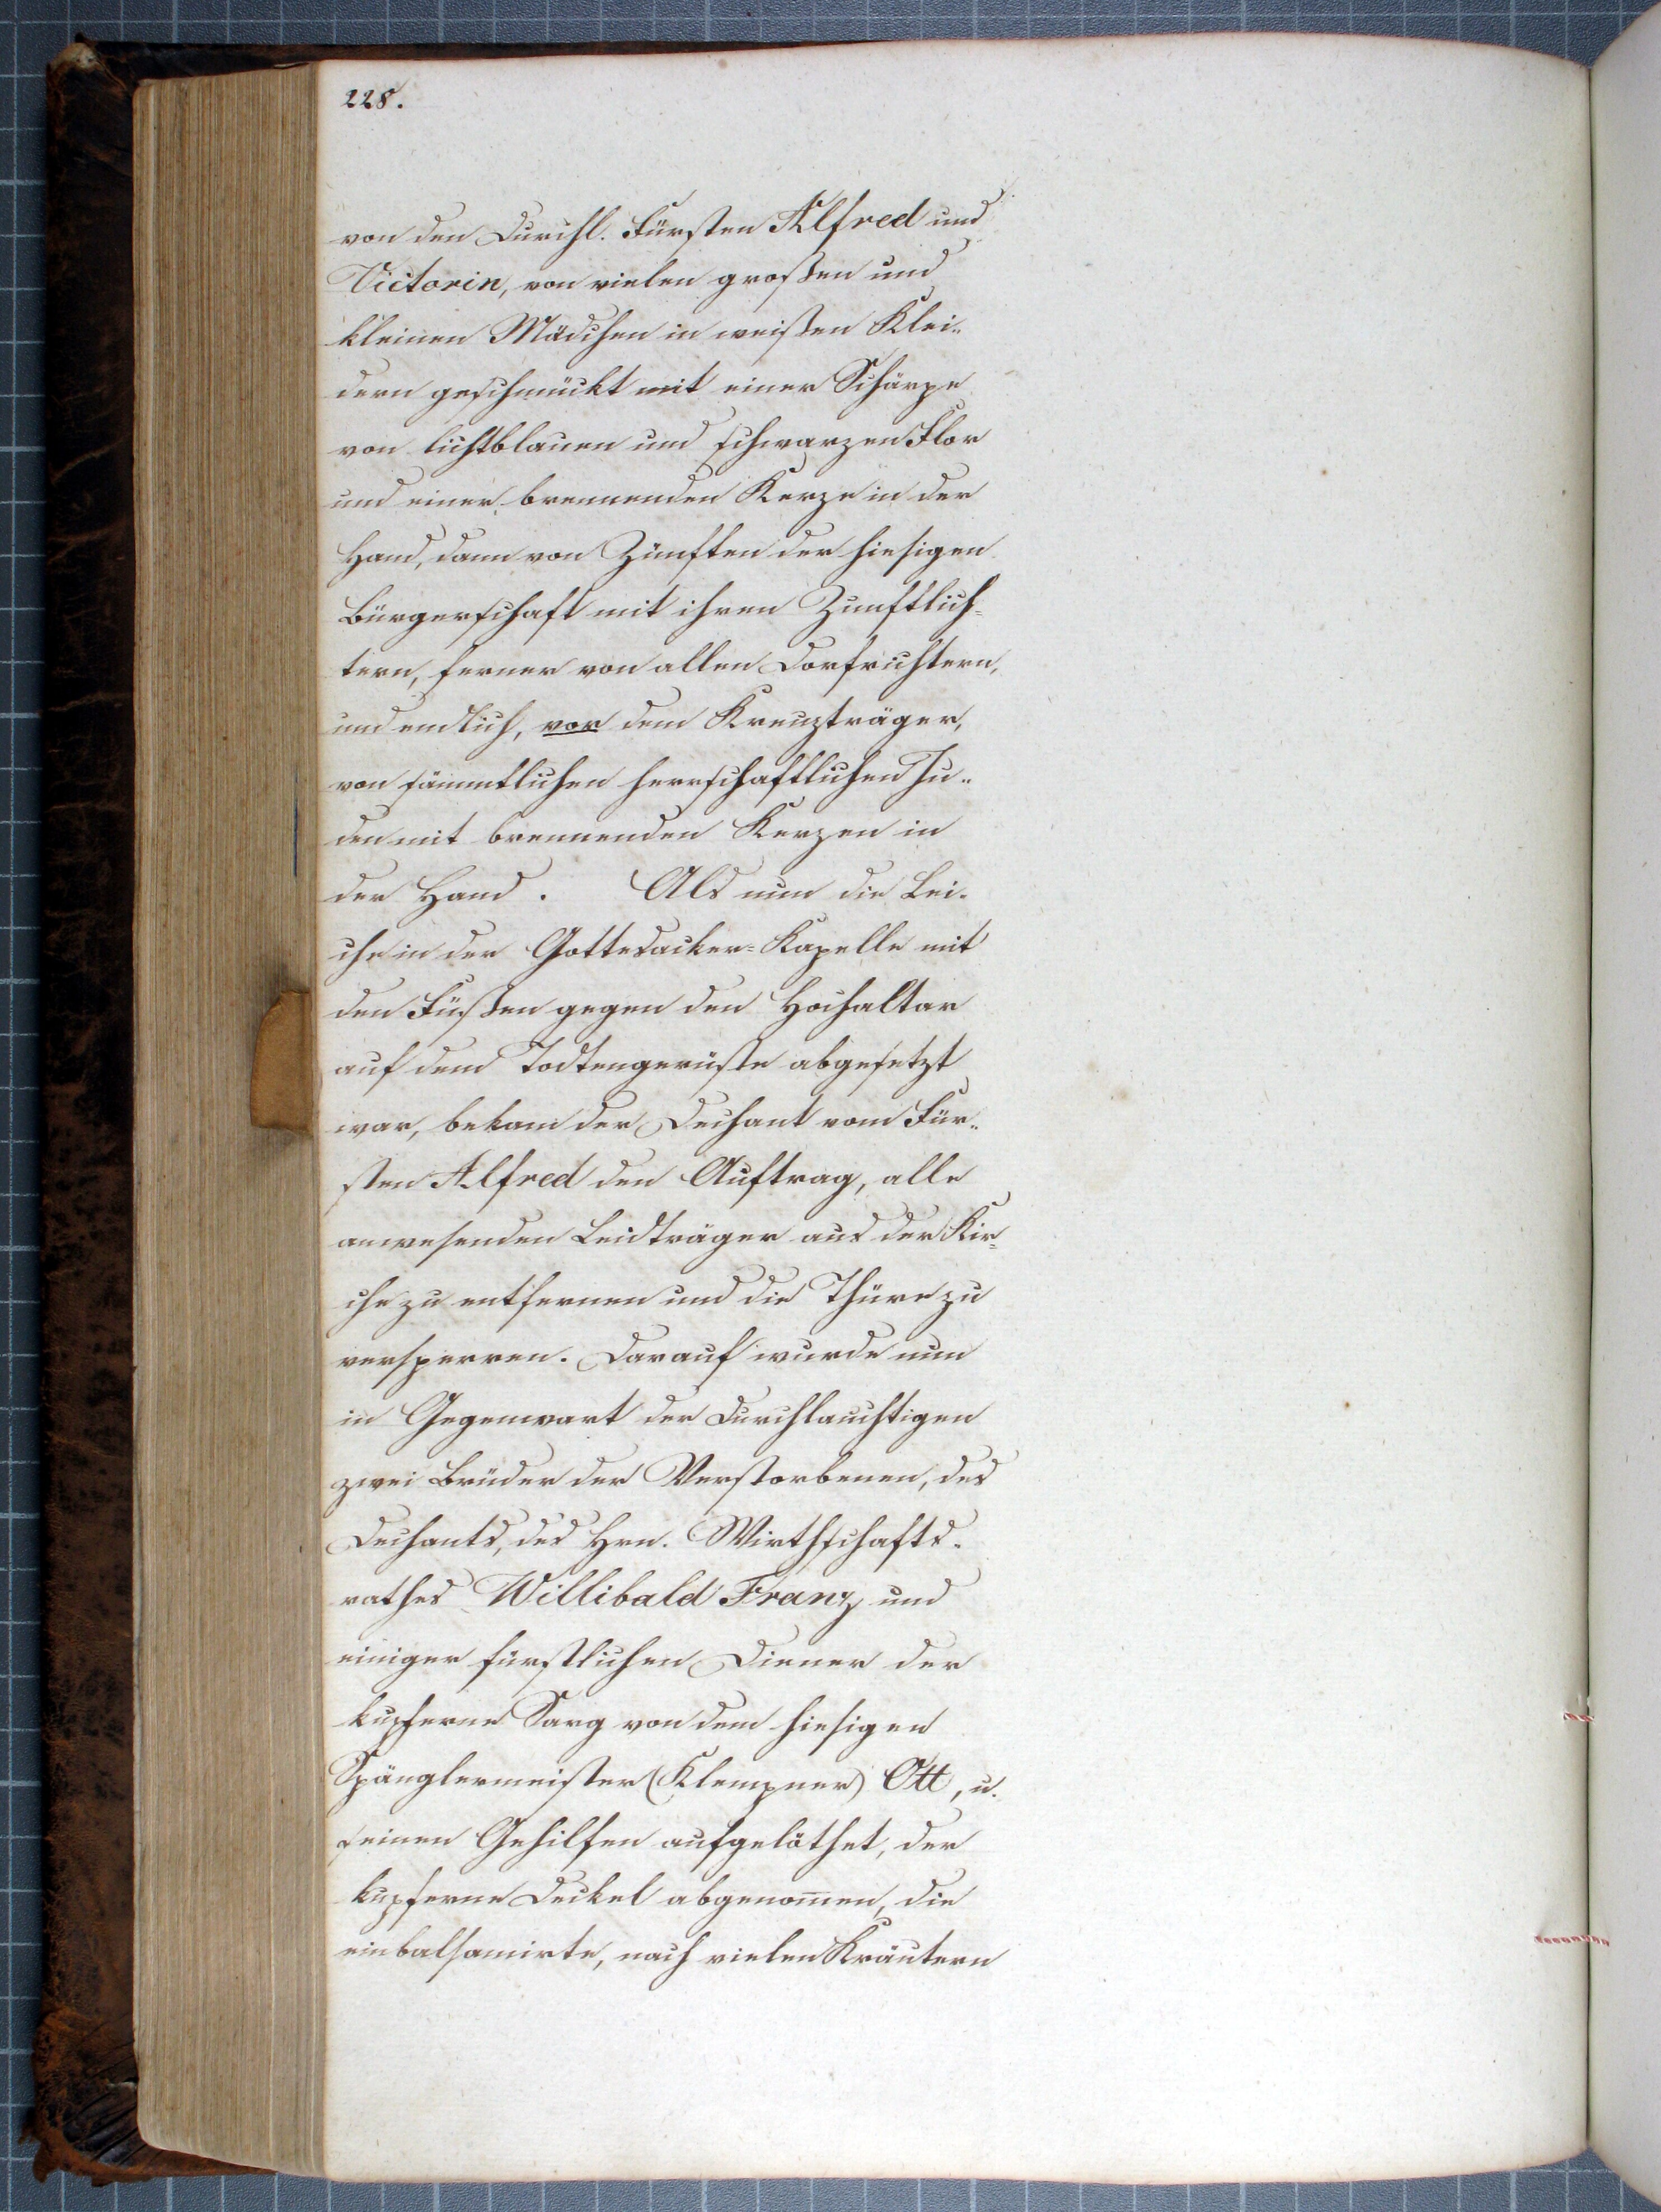 228.
von den Durchl. Fürsten Alfred und
Victorin, von vielen großen und
kleinen Mädchen in weißen Klei-
dern geschmückt mit einer Schärpe
von lichtblauen und schwarzen Flor
und einer brennenden Kerze in der
Hand, dann von Zünften der hiesigen
Bürgerschaft mit ihren Zunftlich=
tern, ferner von allen Dorfrichtern,
und endlich, vor dem Kreuzträger,
von sämmtlichen herrschaftlichen Ju-
den mit brennenden Kerzen in
der Hand. Als nun die Lei-
che in der Gottesacker=Kapelle mit
den Füßen gegen den Hochaltar
auf dem Todtengerüste abgesetzt
war, bekam der Dechant vom Für-
sten Alfred den Auftrag, alle
anwesenden Leidträger aus der Kir=
che zu entfernen und die Thüre zu
versperren. Darauf wurde nun
in Gegenwart der Durchlauchtigen
zwei Brüder der Verstorbenen, des
Dechants, des Hrn. Wirthschafts-
rathes Willibald Franz und
einiger fürstlichen Diener der
kupferne Sarg von dem hiesigen
Spänglermeister (Klempner) Ott, u.
seinen Gehilfen aufgelöthet, der
kupferne Deckel abgenom̅en, die
einbalsamirte, nach vielen Kräutern